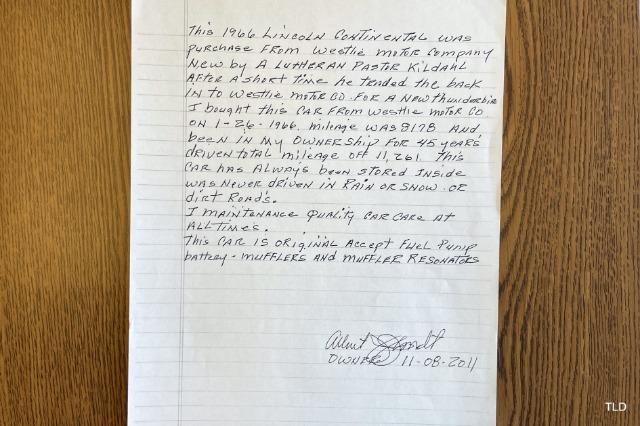 This 1966 LINCOLN CONTINENTAL WAS
purchase from Westlie Motor Company
New by A LUTHERAN PASTOR KILDAHL
AFTER A short time he traded the back
IN to Westlie motor co. FOR A New thunderbird
I bought this CAR FROM Westlie motor co
ON 1-26-1966. mileage was 8178 AND
been IN MY OWNERSHIP FOR 45 years
DRIVEN total mileage off 11,261. This
CAR HAS ALWAYS been STORED INSIDE
WAS NEVER DRIVEN IN RAIN OR SNOW OR
dirt Roads.
I MAINTENANCE QUALITY CAR CARE AT
ALL TIMES.
This CAR IS ORIGINAL Accept Fuel Pump
battery - MUFFLERS AND MUFFLER RESONATORS
OWNER 11-08-2011
TLD